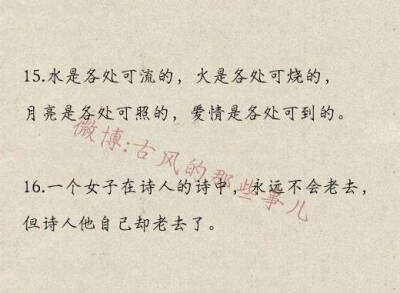 15.水是各处可流的，火是各处可烧的，
月亮是各处可照的，爱情是各处可到的。
16.一个女子在诗人的诗中，永远不会老去，
但诗人他自己却老去了。
微博:古风的那些事儿